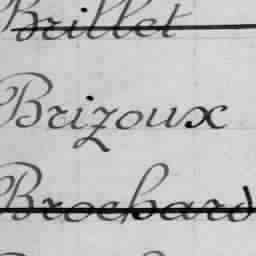 Brillet
Brizoux
Brochard